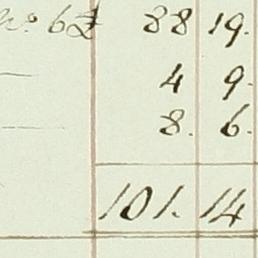 No. 6 £ 88 19.
4 9.
8. 6.
101. 14